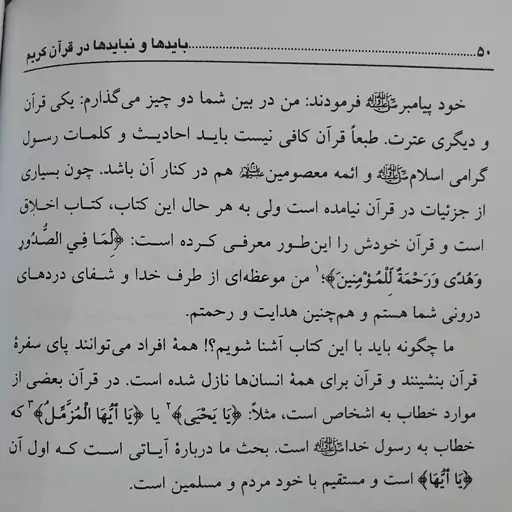 ۵۰ ........................................................................ بایدها و نبایدها در قرآن کریم
خود پیامبرﷺ فرمودند: من در بین شما دو چیز می‌گذارم: یکی قرآن
و دیگری عترت. طبعاً قرآن کافی نیست باید احادیث و کلمات رسول
گرامی اسلامﷺ و ائمه معصومین هم در کنار آن باشد. چون بسیاری
از جزئیات در قرآن نیامده است ولی به هر حال این کتاب، کتاب اخلاق
است و قرآن خودش را این‌طور معرفی کرده است: ﴿لِمَا فِي الصُّدُورِ
وَهُدًى وَرَحْمَةٌ لِّلْمُؤْمِنِينَ﴾؛۱ من موعظه‌ای از طرف خدا و شفای دردهای
درونی شما هستم و هم‌چنین هدایت و رحمتم.
ما چگونه باید با این کتاب آشنا شویم؟! همهٔ افراد می‌توانند پای سفرهٔ
قرآن بنشینند و قرآن برای همهٔ انسان‌ها نازل شده است. در قرآن بعضی از
موارد خطاب به اشخاص است، مثلاً: ﴿يَا يَحْيَى﴾۲ یا ﴿يَا أَيُّهَا الْمُزَّمِّلُ﴾۳ که
خطاب به رسول خداﷺ است. بحث ما دربارهٔ آیاتی است که اول آن
﴿يَا أَيُّهَا﴾ است و مستقیم با خود مردم و مسلمین است.